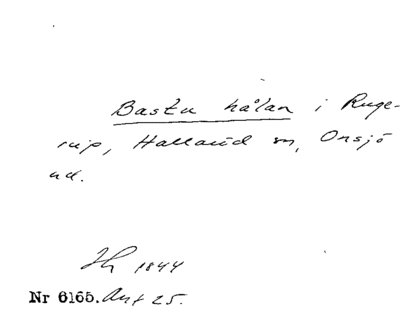 Bastu hålan i Ruge-
rup, Hallaröd sn, Onsjö
hd.
1844
Nr 6165. Ant 25.